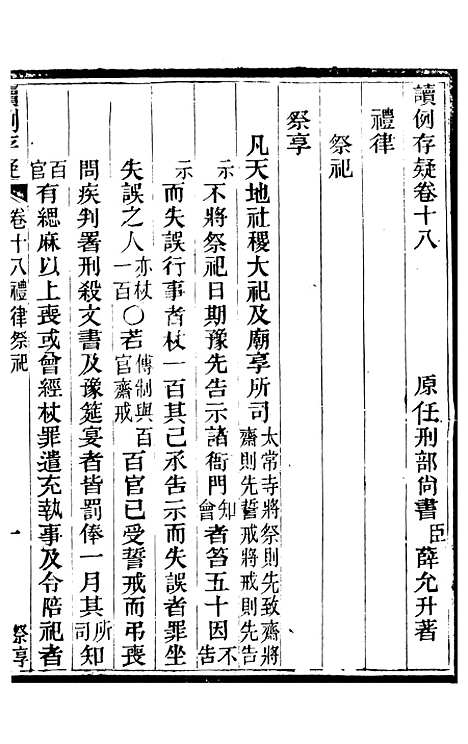 讀例存疑卷十八 原任刑部尚書臣薛允升著
禮律
祭祀
祭享
凡天地社稷大祀及廟享所司太常寺將祭則先致齋將齋則先誓戒將戒則先告
示不將祭祀日期豫先告示諸衙門知會者笞五十因不告
示而失誤行事者杖一百其已承告示而失誤者罪坐
失誤之人亦杖一百〇若傳制與百官齋戒百官已受誓戒而弔喪
問疾判署刑殺文書及豫筵宴者皆罰俸一月其所司知
百官有緦麻以上喪或曾經杖罪遣充執事及令陪祀者
讀例存疑 卷十八禮律祭祀 一 祭享